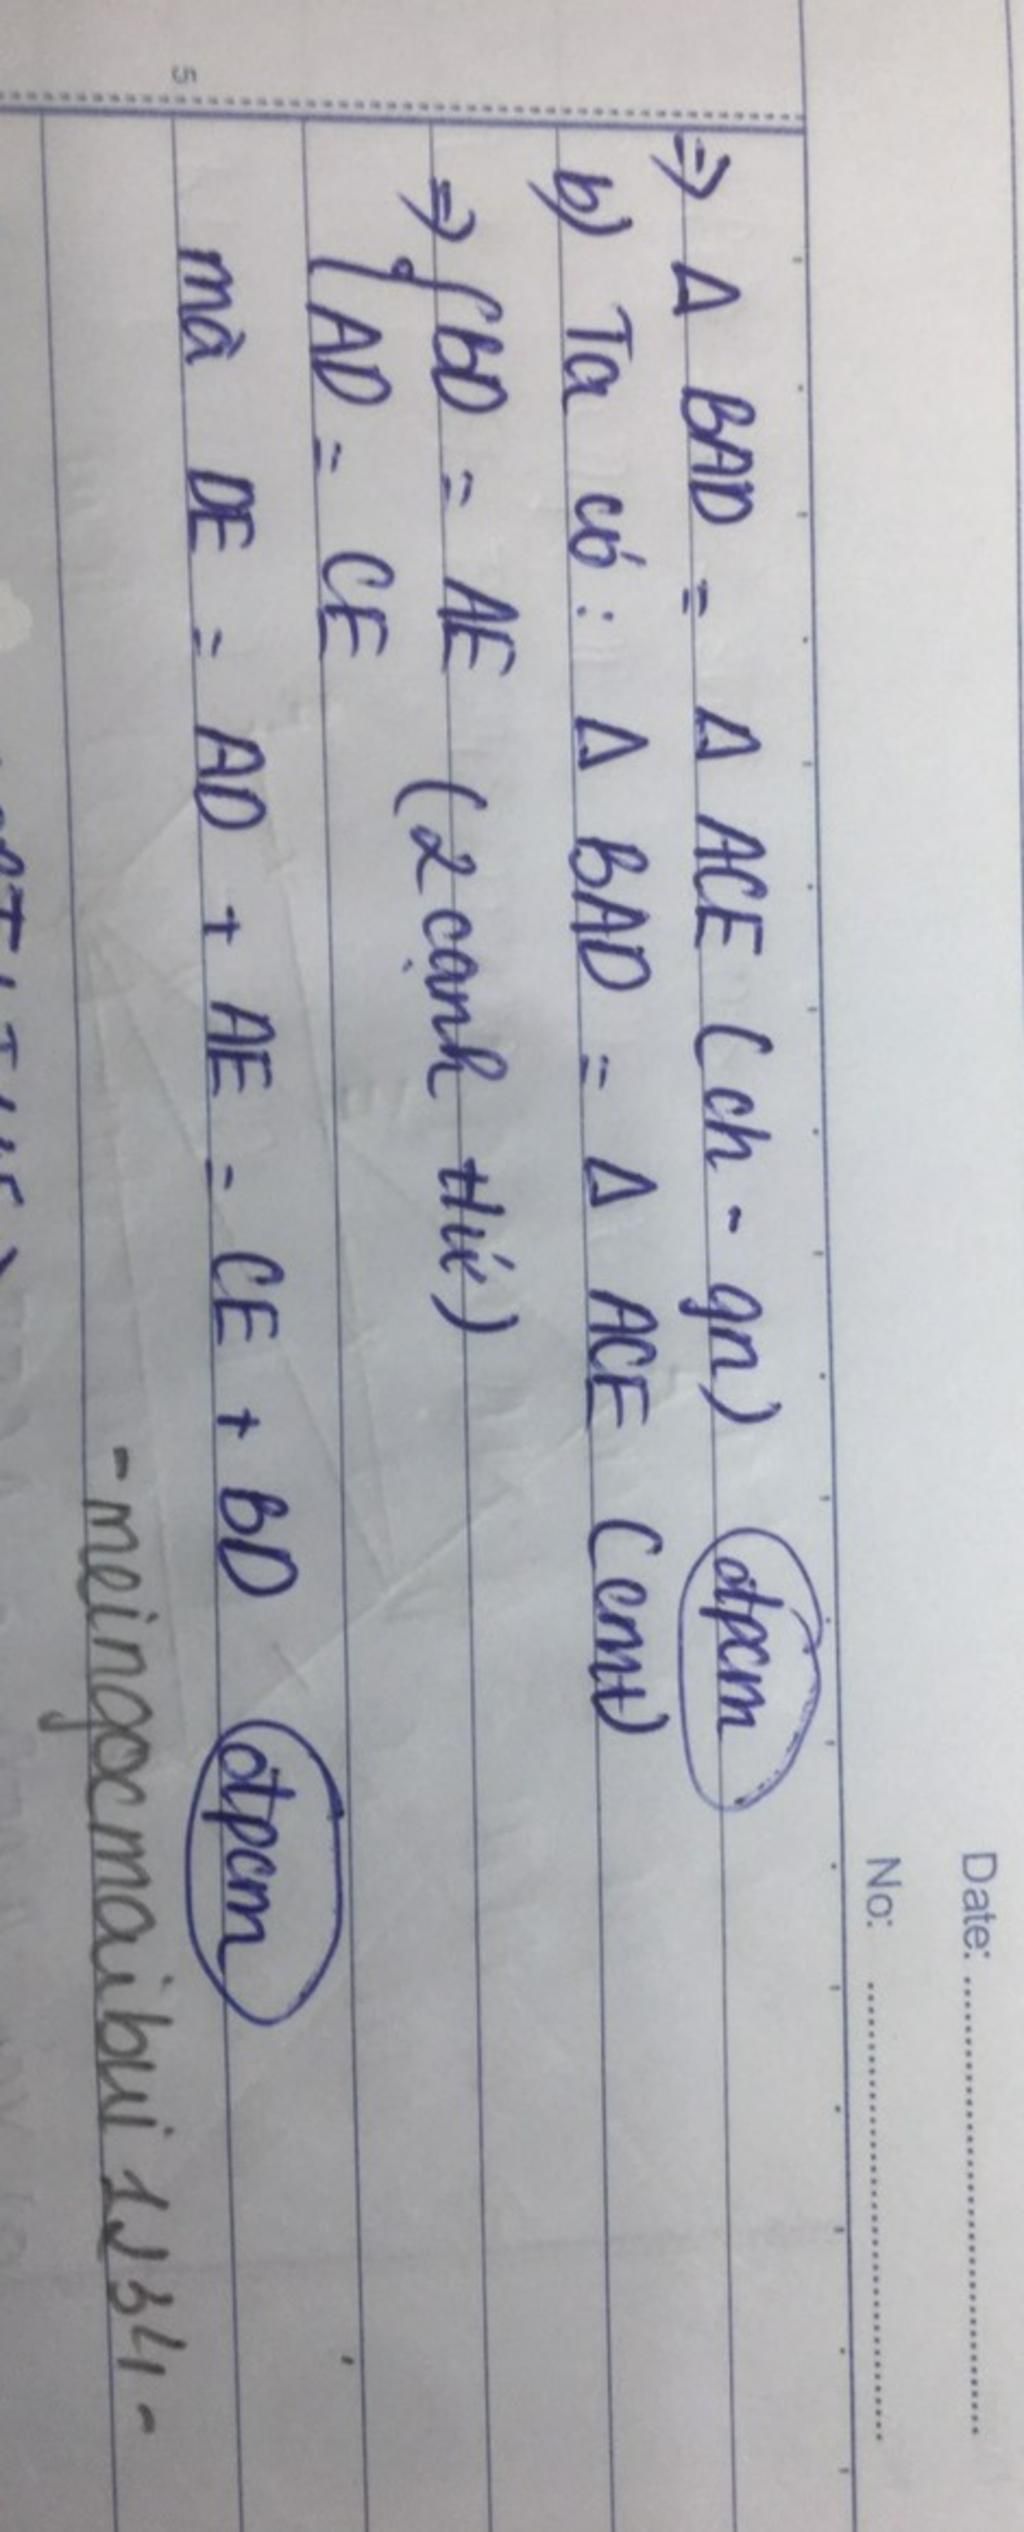 Date:
No:
=> Δ BAD = Δ ACE (ch - gn) đpcm
b) Ta có: Δ BAD = Δ ACE (cmt)
=> { BD = AE (2 cạnh tứ)
AD = CE
mà DE = AD + AE = CE + BD đpcm
- meingocmaibui 1234 -
5